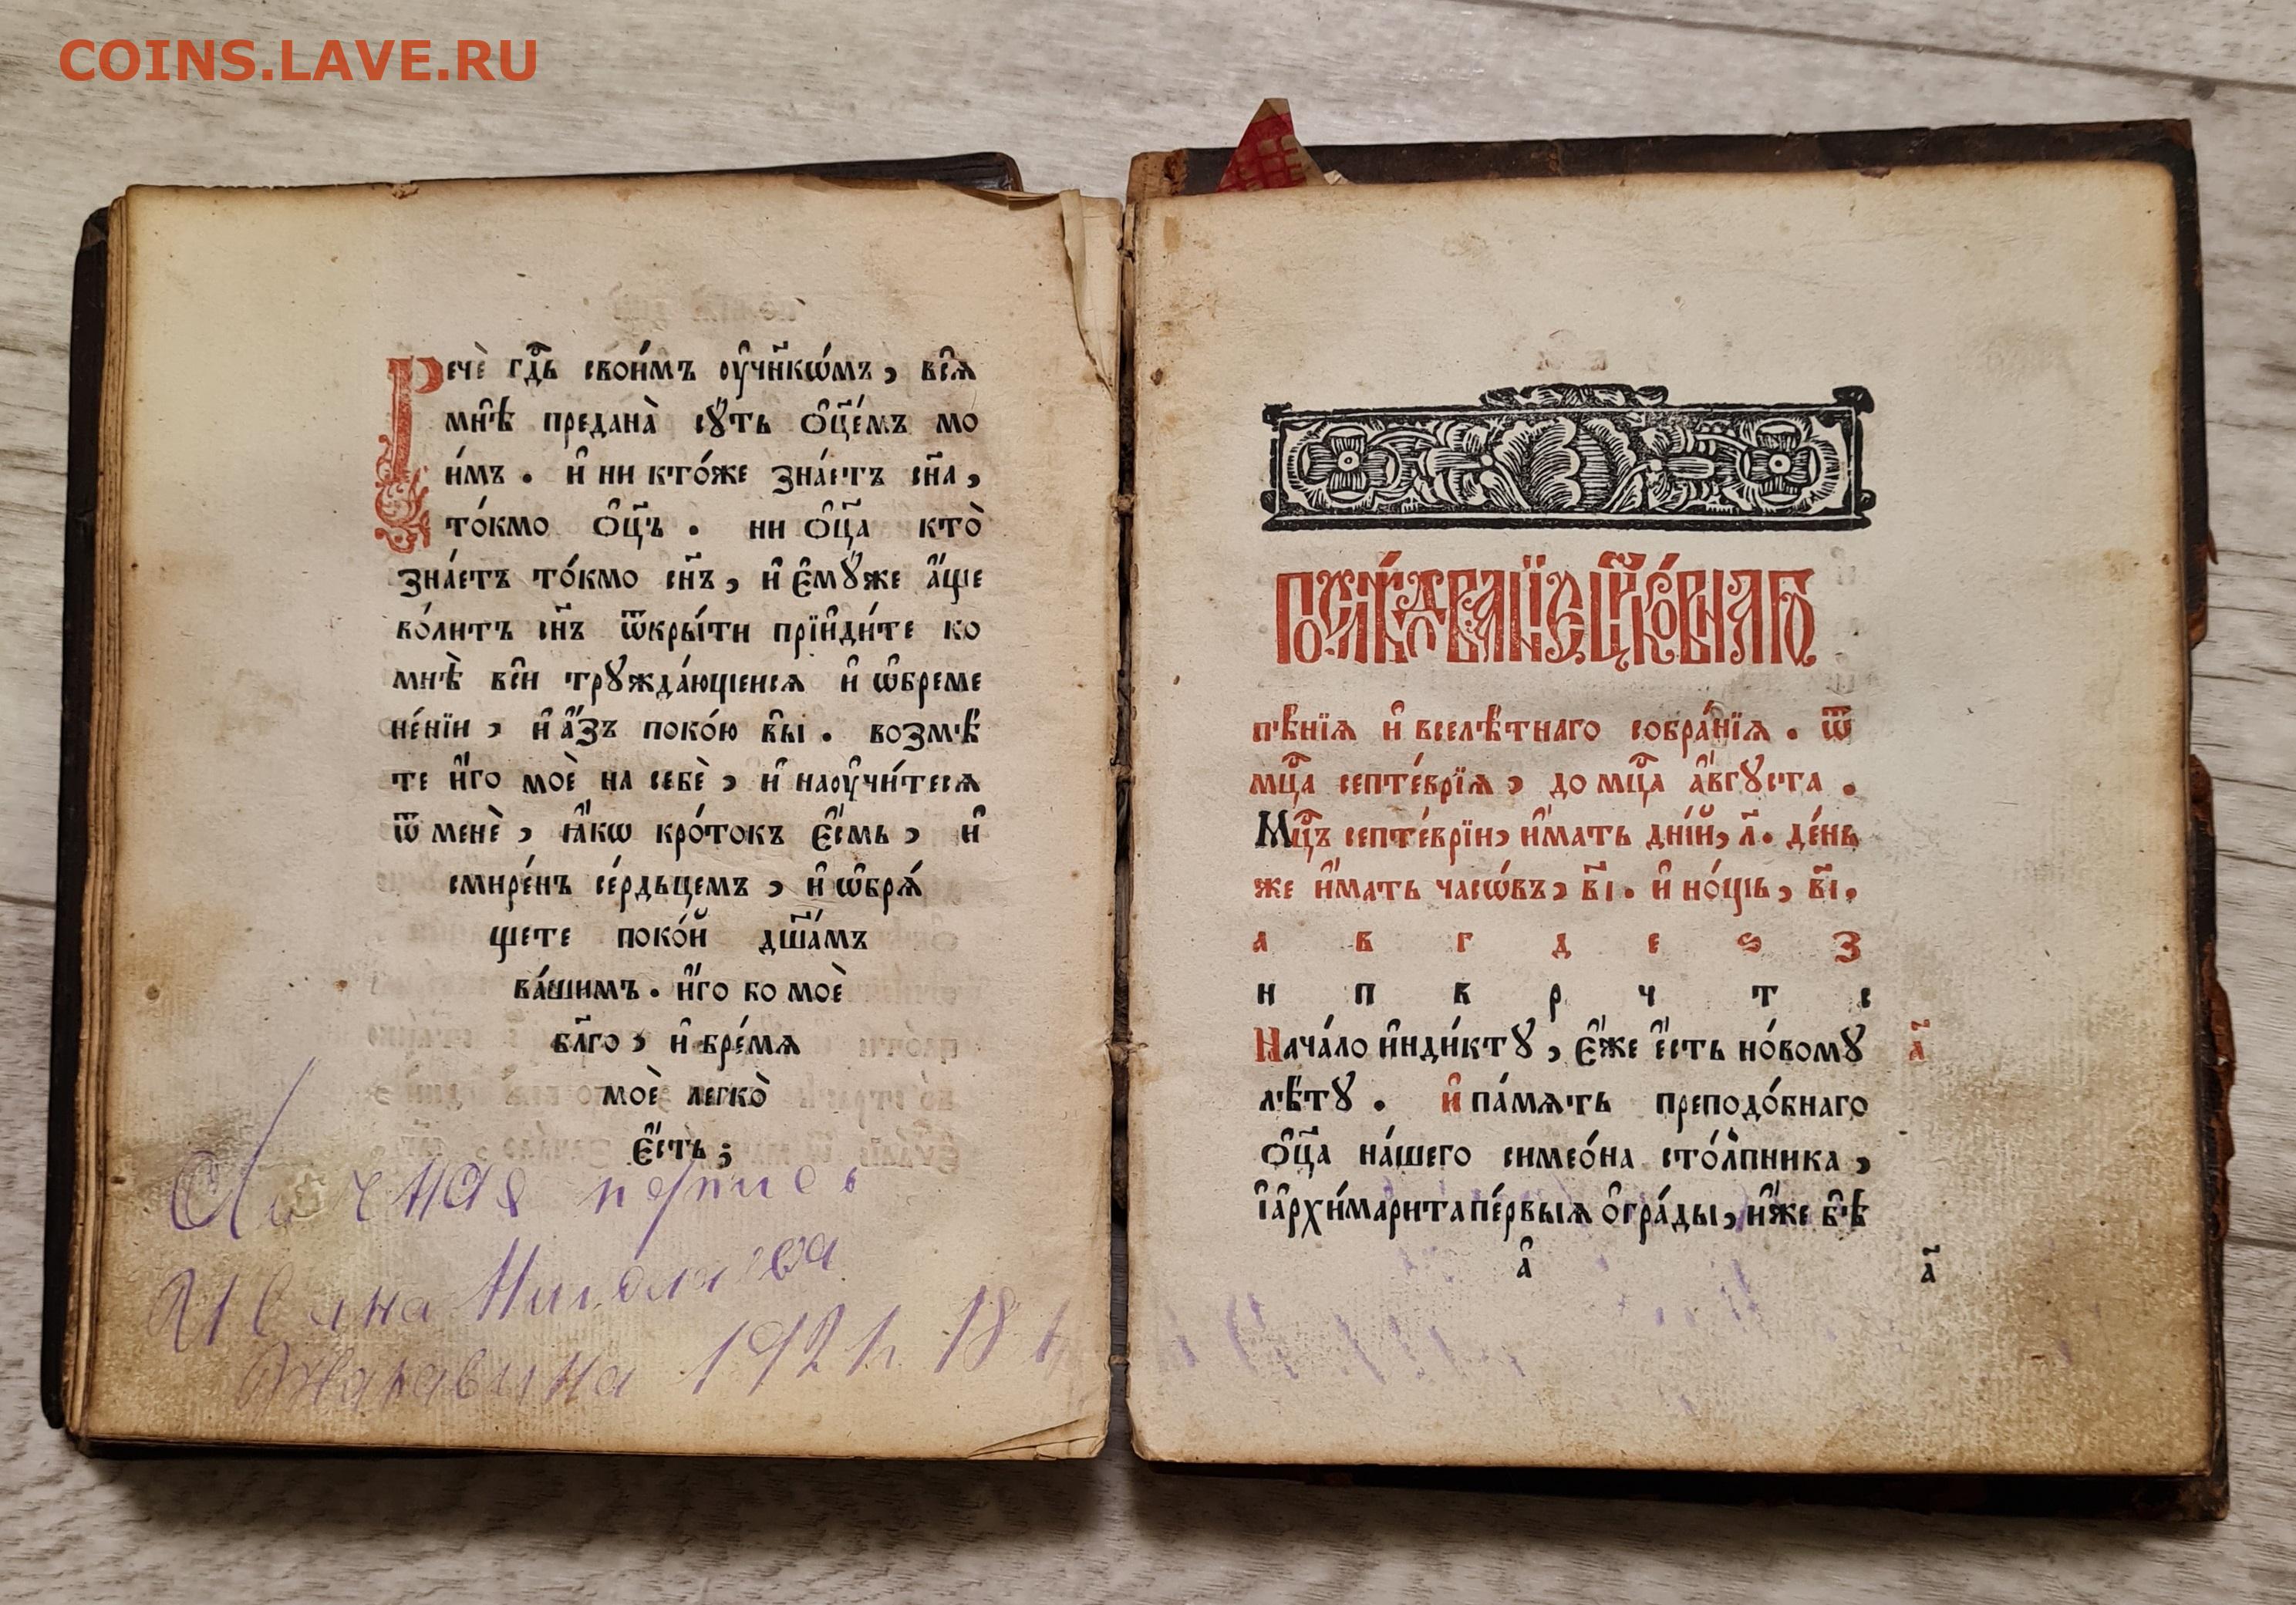 COINS.LAVE.RU
Речѐ гдⷭ҇ь свои́мъ оу҆чн҃кѡ́мъ, всѧ҆̑
мнѣ̀ преданѐ сꙋ́ть ѻ҆ц҃е́мъ мо
и́мъ. и҆ ни кто́же зна́етъ сн҃а,
то́кмо ѻ҆ц҃ъ. ни ѻ҆ц҃а кто̀
зна́етъ то́кмо сн҃ъ, и҆ є҆мꙋ́же а҆́ще
во́литъ сн҃ъ ѿкры́ти прїи҆ди́те ко
мнѣ̀ всѝ трꙋжда́ющїисѧ и҆ ѡ҆бреме
не́нїи, и҆ а҆́зъ поко́ю вы̀. возмѣ́
те и҆́го моѐ на себѐ, и҆ наоу҆чи́тесѧ
ѿ менѐ, ꙗ҆́кѡ кро́токъ є҆́смь, и҆
смире́нъ се́рдьцемъ, и҆ ѡ҆брѧ́
щете поко́й дш҃а́мъ
ва́шимъ. и҆́го бо моѐ
бл҃го, и҆ бре́мѧ
моѐ легко̀
є҆́сть;
Личная
Ивана Николаева
192
Послѣ́дованїе цр҃ко́внаго
пѣ́нїѧ и҆ вселѣ́тнаго собра́нїѧ. ѿ
мцⷭ҇а септе́врїѧ, до мцⷭ҇а а҆́вгꙋста.
Мцⷭ҇ъ септе́врїи, и҆́мать дні́й, л҃. де́нь
же и҆́мать часѡ́въ, в҃і. и҆ но́щь, в҃і.
а в г д е ѕ з
н п в р ч т с
Нача́ло и҆нди́ктꙋ, є҆́же є҆́сть но́вомꙋ а҃
лѣ́тꙋ. и҆ па́мѧть преподо́бнаго
ѻ҆ц҃а на́шего симео́на сто́лпника,
і҆ а҆рхимари́та пе́рвыѧ ѻ҆гра́ды, и҆́же бѣ̀
а҆ а҃